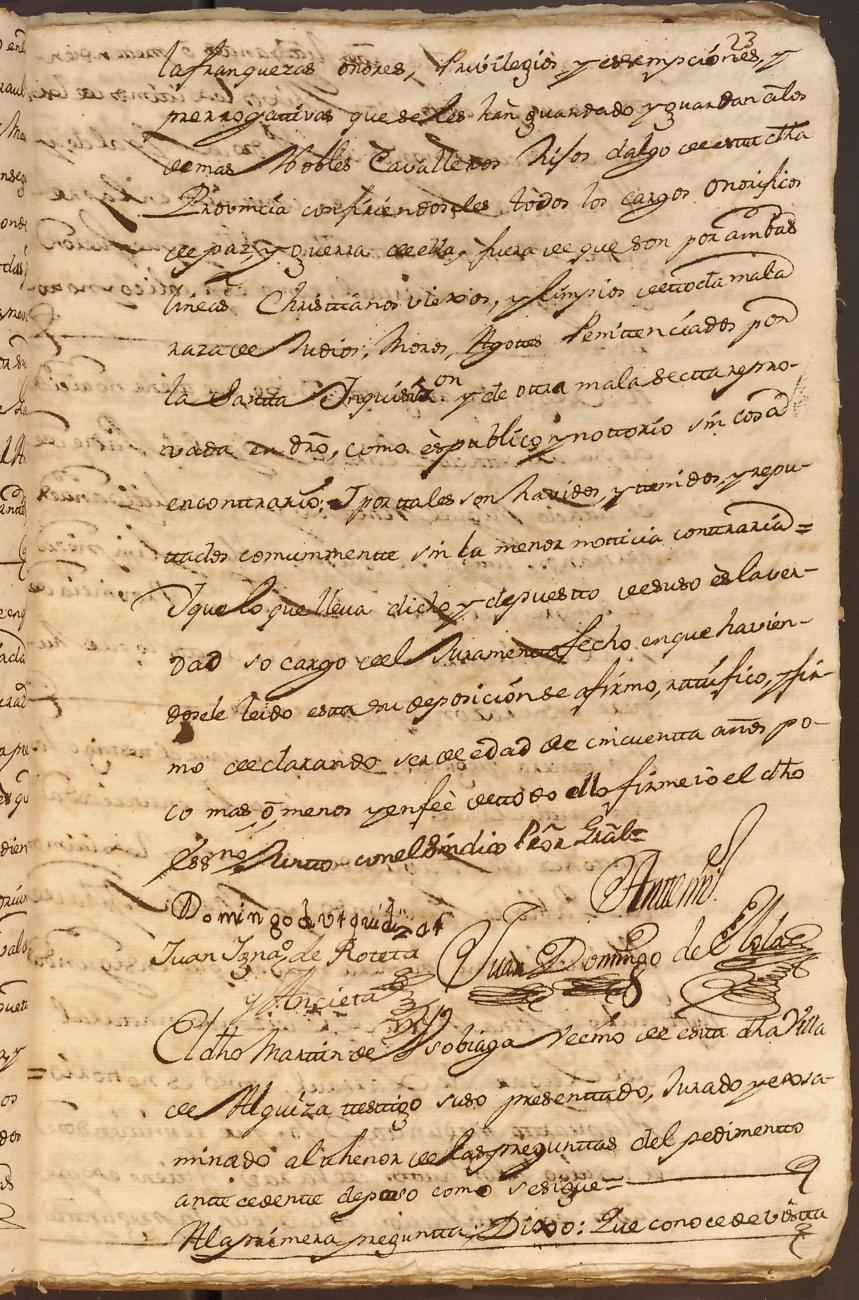 23
la franquezas onores, Privilegios y essempsiones, y
prerrogattivas que se les han guardado y guardan a los
demas Nobles Cavalleros Hijos dalgo de esta dha
Provincia confiriendoseles todos los cargos onorificos
de paz y guerra de ella, fuera de que son por ambas
lineas Christtianos viexos, y limpios de ttoda mala
raza de Judios, Moros, Agotes Penittenciados por
la Santta Inquisizon y de otra mala sectta repro-
vada en dro, como es publico y nottorio sin cosa
en conttrario; I por ttales son havidos, y ttenidos, y repu-
ttados comunmentte sin la menor notticia conttraria=
I que lo que lleva dicho y depuestto de suso es la ver-
dad so cargo del Juramentto fecho en que havien-
dosele leido estta su deposición se afirmo, rattifico, y fir-
mo declarando ser de edad de cincuentta años po-
co mas o menos y en feè de ttodo ello firme io el dho
Essno Juntto con el Sindico Pror Gral=
Antemi
Domingo de Urquidizar
Juan Ignao de Rotetta
Juan Domingo de Elola
y Ancieta
El dho Marttin de Ysobiaga Vecino de estta dha Villa
de Alquiza ttesttigo suso presenttado, Jurado y exsa-
minado al thenor de las preguntttas del pedimentto
antte cedente depuso como se sigue=
A la primera preguntta, Dixo: Que conoce de vistta